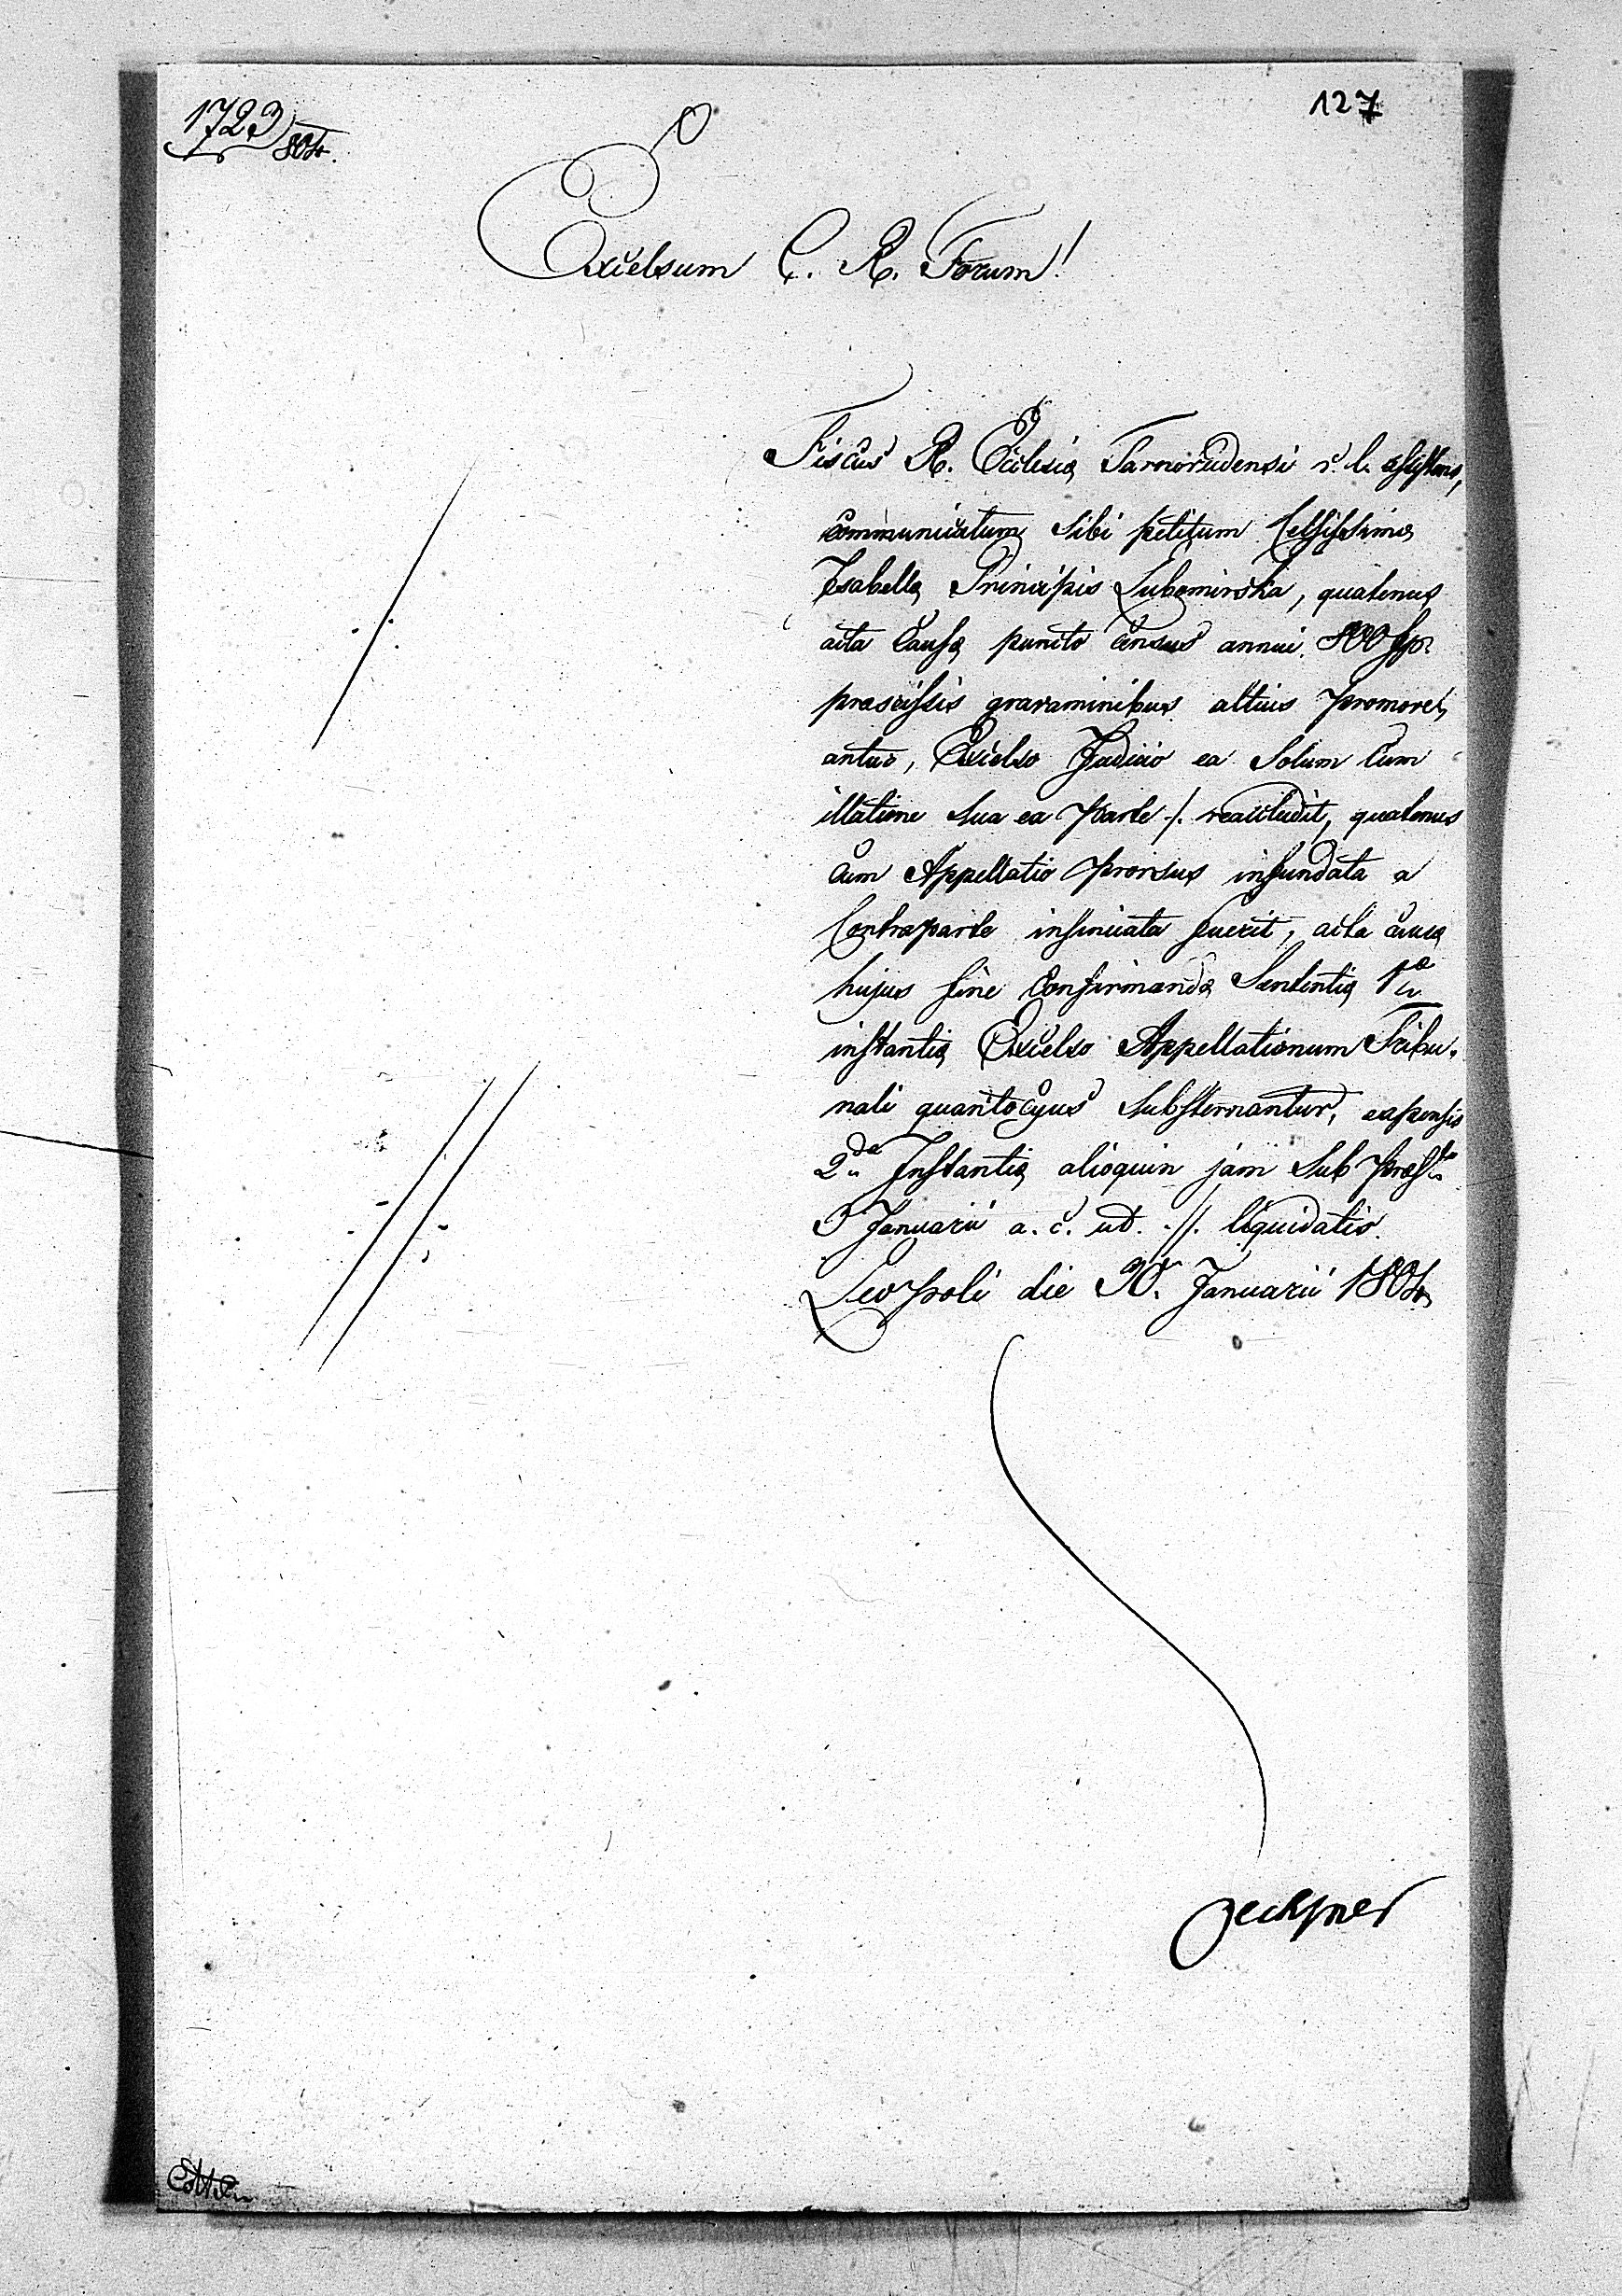 1723/804.
127
Excelsum C. R. Forum!
Fiscus R. Ecclesiæ Tarnorudensi r. l. assistens,
communicatum sibi petitum Celsissimæ
Isabellæ Principis Lubomirska, quatenus
acta causæ puncto census annui 800 fp.
præscissis gravaminibus altius promove-
antur, Excelso Judicio ea solum cum
illatione sua ea parte /. reaccludit, quatenus
cum Appellatio prorsus infundata a
Contraparte insinuata fuerit, acta causæ
hujus fine confirmandæ Sententiæ 1æ
instantiæ Excelso Appellationum Tribu-
nali quantocyus substernantur, expensis
2dæ Instantiæ alioquin jam sub præsto
3 Januarii a. c. ut //. liquidatis.
Leopoli die 30. Januarii 1804